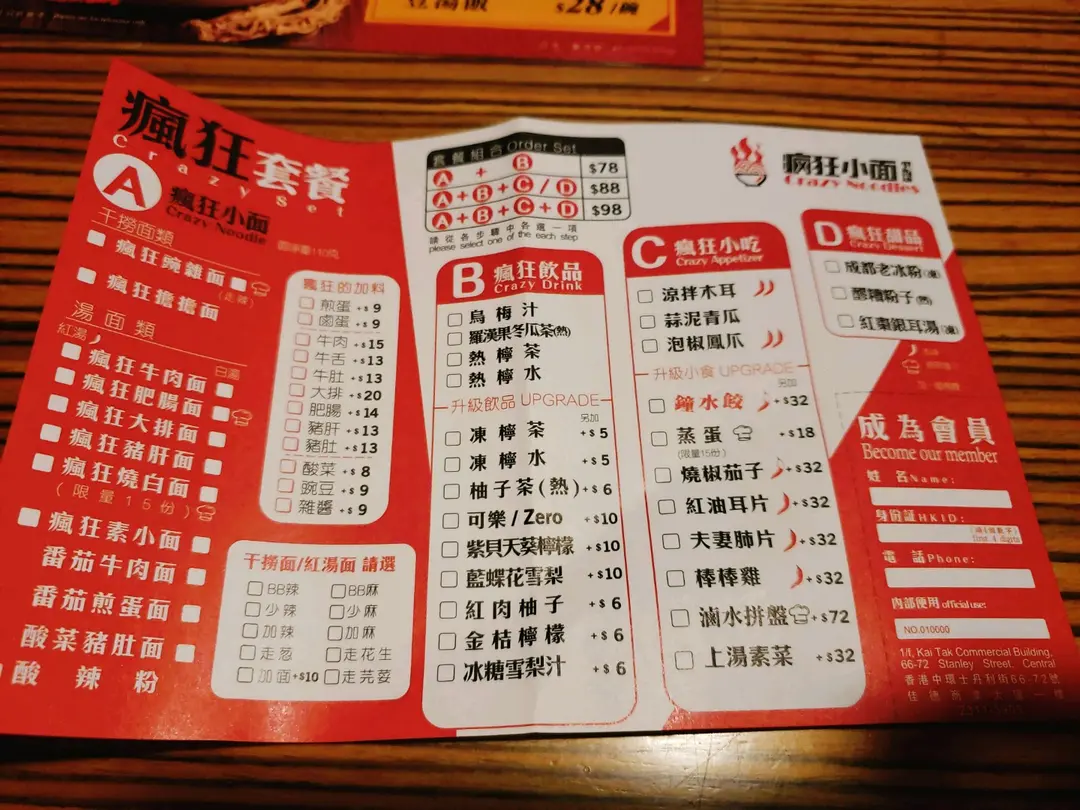 豆湯飯
$28/碗
瘋狂套餐
Crazy Set
A 瘋狂小面
Crazy Noodle
干撈面類
瘋狂豌雜面
(走辣)
瘋狂擔擔面
湯面類
紅湯
白湯
瘋狂牛肉面
瘋狂肥腸面
瘋狂大排面
瘋狂豬肝面
瘋狂燒白面
(限量15份)
瘋狂素小面
番茄牛肉面
番茄煎蛋面
酸菜豬肚面
酸辣粉
瘋狂的加料
煎蛋 +$9
鹵蛋 +$9
牛肉 +$15
牛舌 +$13
牛肚 +$13
大排 +$20
肥腸 +$14
豬肝 +$13
豬肚 +$13
酸菜 +$8
豌豆 +$9
雜醬 +$9
干撈面/紅湯面 請選
BB辣 BB麻
少辣 少麻
加辣 加麻
走葱 走花生
加面+$10 走芫荽
套餐組合 Order Set
A + B $78
A+B+C/D $88
A+B+C+D $98
請從各步驟中各選一項
please select one of the each step
B 瘋狂飲品
Crazy Drink
烏梅汁
羅漢果冬瓜茶(熱)
熱檸茶
熱檸水
升級飲品 UPGRADE
另加
凍檸茶 +$5
凍檸水 +$5
柚子茶(熱) +$6
可樂/Zero +$10
紫貝天葵檸檬 +$10
藍蝶花雪梨 +$10
紅肉柚子 +$6
金桔檸檬 +$6
冰糖雪梨汁 +$6
C 瘋狂小吃
Crazy Appetizer
涼拌木耳
蒜泥青瓜
泡椒鳳爪
升級小食 UPGRADE
另加
鐘水餃 +$32
蒸蛋 +$18
(限量15份)
燒椒茄子 +$32
紅油耳片 +$32
夫妻肺片 +$32
棒棒雞 +$32
滷水拼盤 +$72
上湯素菜 +$32
瘋狂小面
Crazy Noodles
D 瘋狂甜品
Crazy Dessert
成都老冰粉(凍)
醪糟粉子(熱)
紅棗銀耳湯(凍)
成為會員
Become our member
姓 名Name:
身份証HKID:
(頭4個數字)
first 4 digits
電 話Phone:
內部使用 official use:
NO.010000
1/f, Kai Tak Commercial Building,
66-72 Stanley Street, Central
香港中環士丹利街66-72號
佳德商業大廈一樓